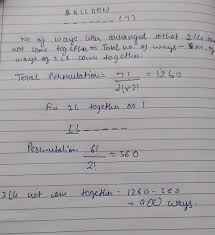 BALLOON
(7)
No of ways letter arranged so that 2 L's do
not come together = Total no. of ways - no. of
ways of 2 L come together.
Total Permutation = 7! / 2! x 2! = 1260
As 2L together as 1
LL - - - - -
Permutation 6! / 2! = 360
2 L's not com together = 1260 - 360
= 900 ways.